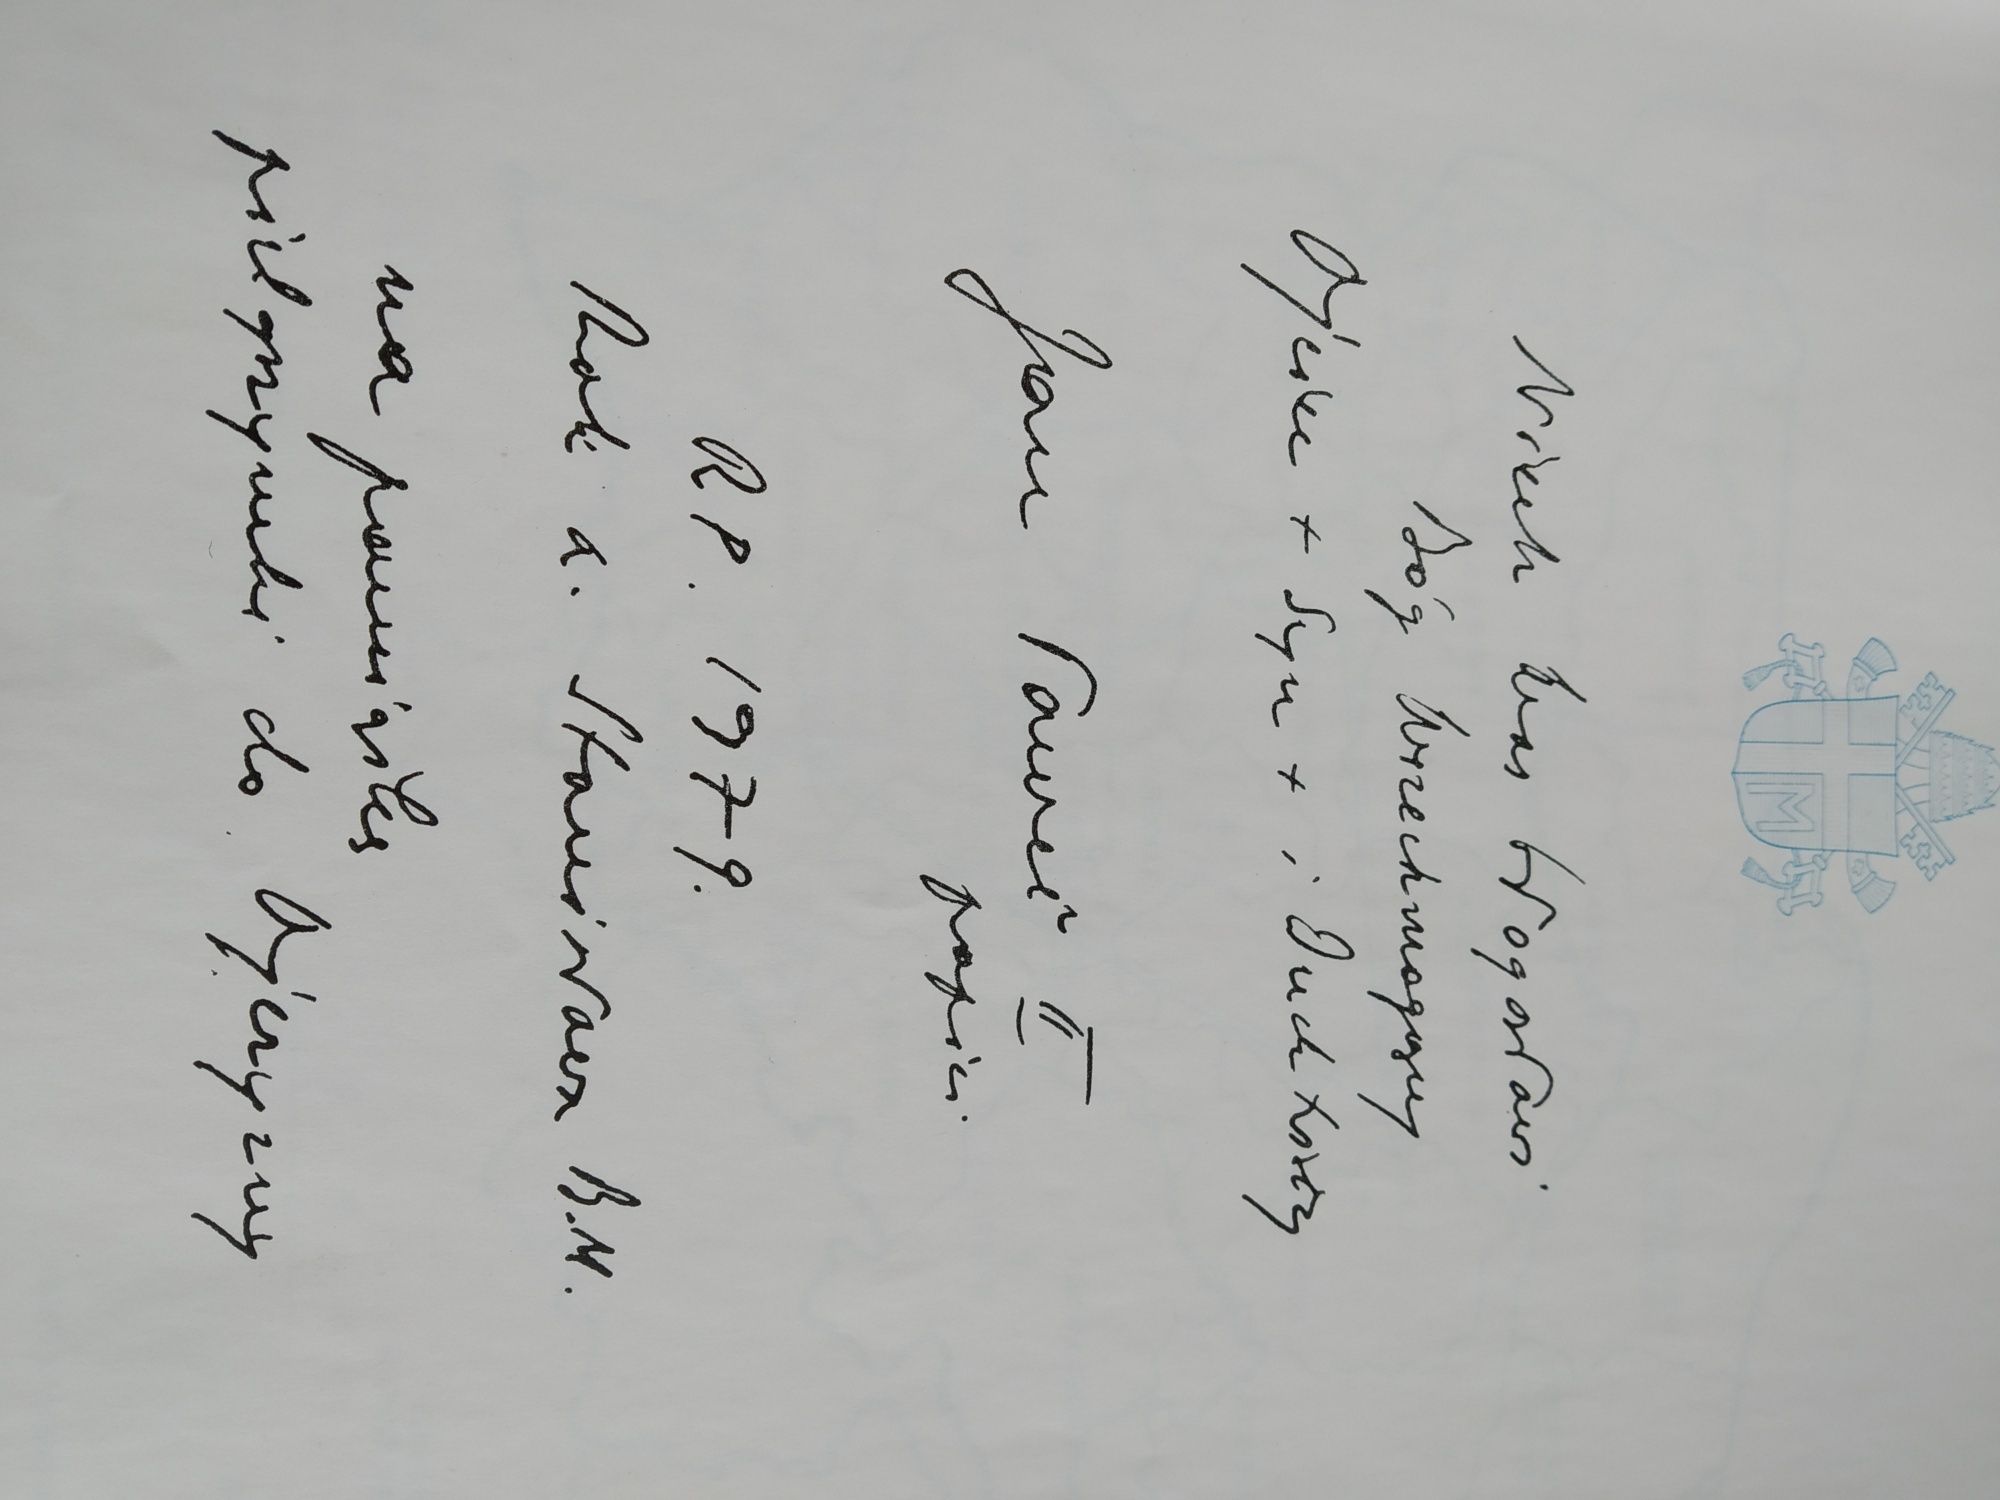 Niech Was błogosławi
Bóg Wszechmogący
Ojciec + Syn + i Duch Święty
Jan Paweł II
papież.
R.P. 1979.
Rok Św. Stanisława B.M.
na pamiątkę
pielgrzymki do Ojczyzny
M